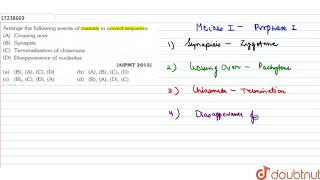 17238669
Arrange the following events of meiosis in correct sequence
(A) Crossing over
(B) Synapsis
(C) Terminalisation of chiasmata
(D) Disappearance of nucleolus
[AIPMT 2015]
(a) (B), (A), (C), (D)
(b) (A), (B), (C), (D)
(c) (B), (C), (D), (A)
(d) (B), (A), (D), (C)
Meiosis I - Prophase I
1) Synapsis - Zygotene
2) Crossing Over - Pachytene
3) Chiasmata - Termination
4) Disappearance
doubtnut